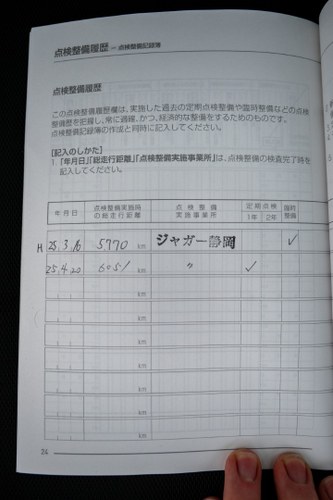 点検整備履歴 － 点検整備記録簿
点検整備履歴
この点検整備履歴欄は、実施した過去の定期点検整備や臨時整備などの点検
整備歴を把握し、常に適確、かつ、経済的な整備をするためのものです。
点検整備記録簿の作成と同時に記入してください。
[記入のしかた]
1. 「年月日」「総走行距離」「点検整備実施事業所」は、点検整備の検査完了時を
記入してください。
年月日 点検整備実施時の総走行距離 点検整備実施事業所 定期点検 1年 2年 臨時整備
H 25.3.16 5770 km ジャガー静岡 ✓
25.4.20 6051 km 〃 ✓
km
km
km
km
km
km
km
36